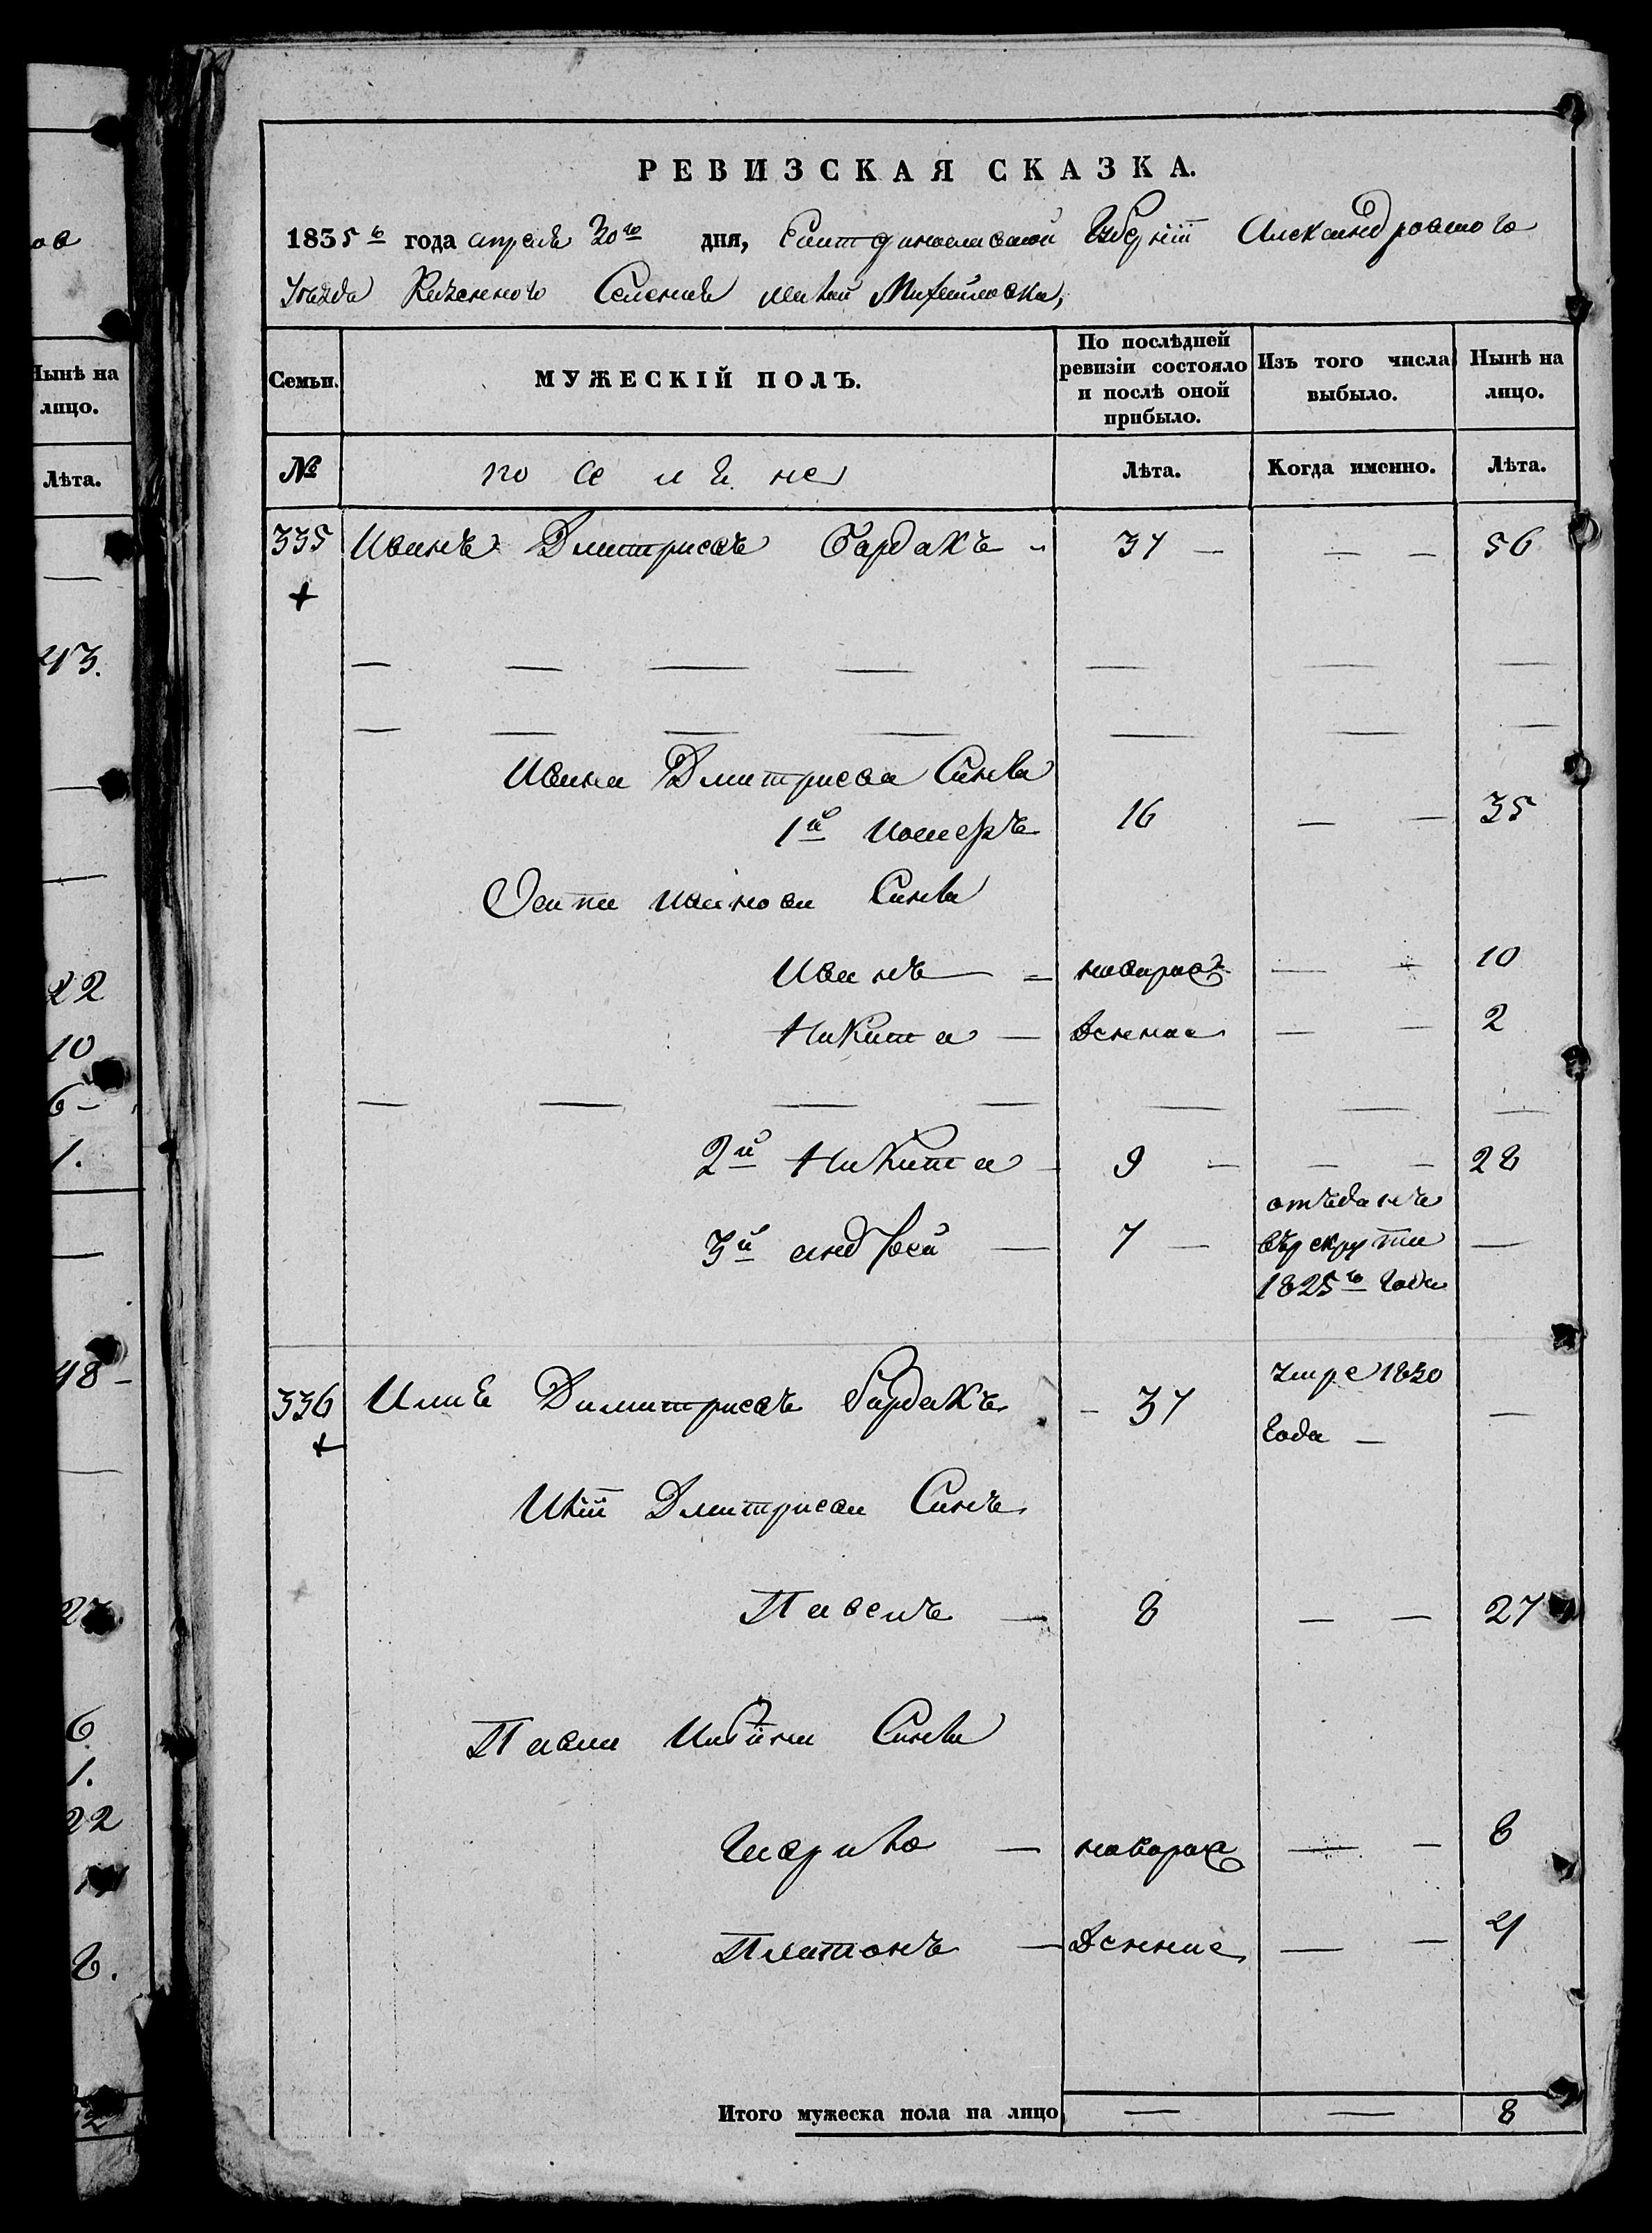 РЕВИЗСКАЯ СКАЗКА.
1835 го года апреля 30 го дня, Екатеринославской Губернiи Александровского
Уезда Казенного Селения малой Михайловки,
Семьи.
МУЖЕСКІЙ ПОЛЪ.
По послѣдней ревизіи состояло и послѣ оной прибыло.
Изъ того числа выбыло.
Нынѣ на лицо.
№
Лѣта.
Когда именно.
Лѣта.
335 Иванъ Дмитриевъ бардакъ 37 — — — 56
Ивана Дмитриева Сынва
1й 16 — — 35
Иванова Сынва
Иванъ — новорож — 10
Никита — денные — — 2
2й Никита 9 — — — 28
3й андрей — 7 — отъданъ въ рекрути 1825 го года —
336 Илия Димитриевъ бардакъ — 37 умре 1830 года — —
Илiи Дмитриева Синъ
Павелъ — 8 — — 27
Павла Сынва
— новорож — — 8
Платонъ — денние — — 4
Итого мужеска пола на лицо — — 8
Нынѣ на
лицо.
Лѣта.
43.
22
10
6 —
1.
48 —
6
1.
22
8.